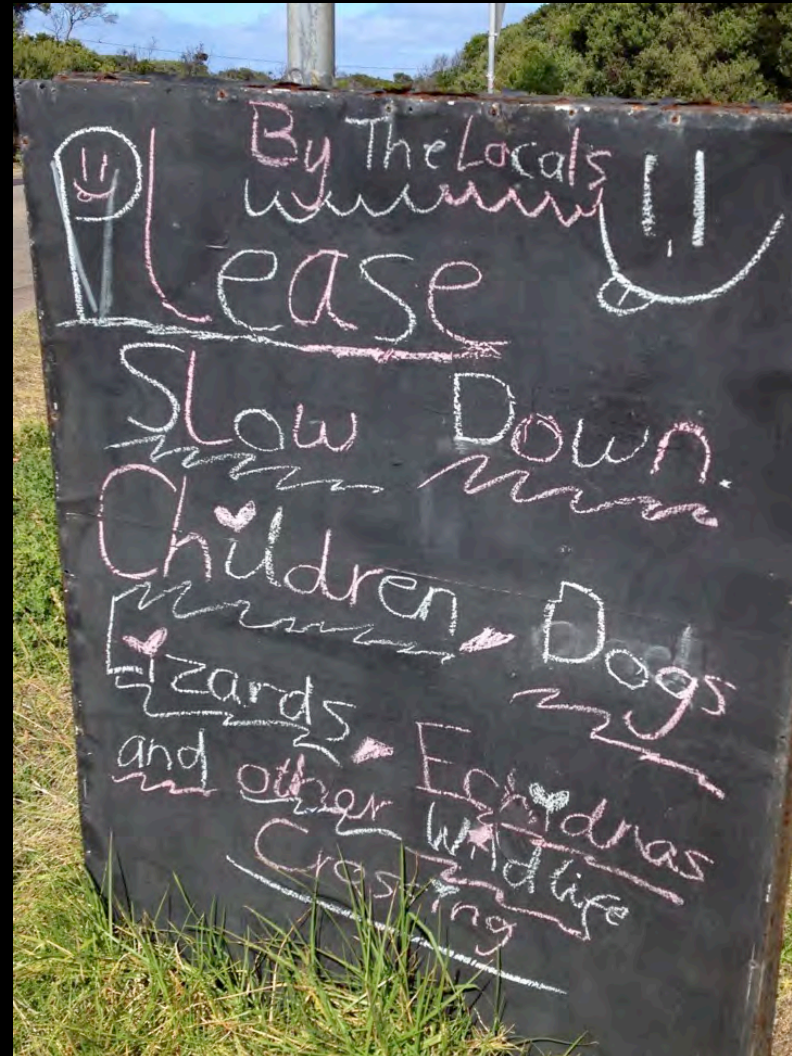 By The Locals
PLease
SLow Down.
Children Dogs
Lizards Echidnas
and other Wildlife
Crossing